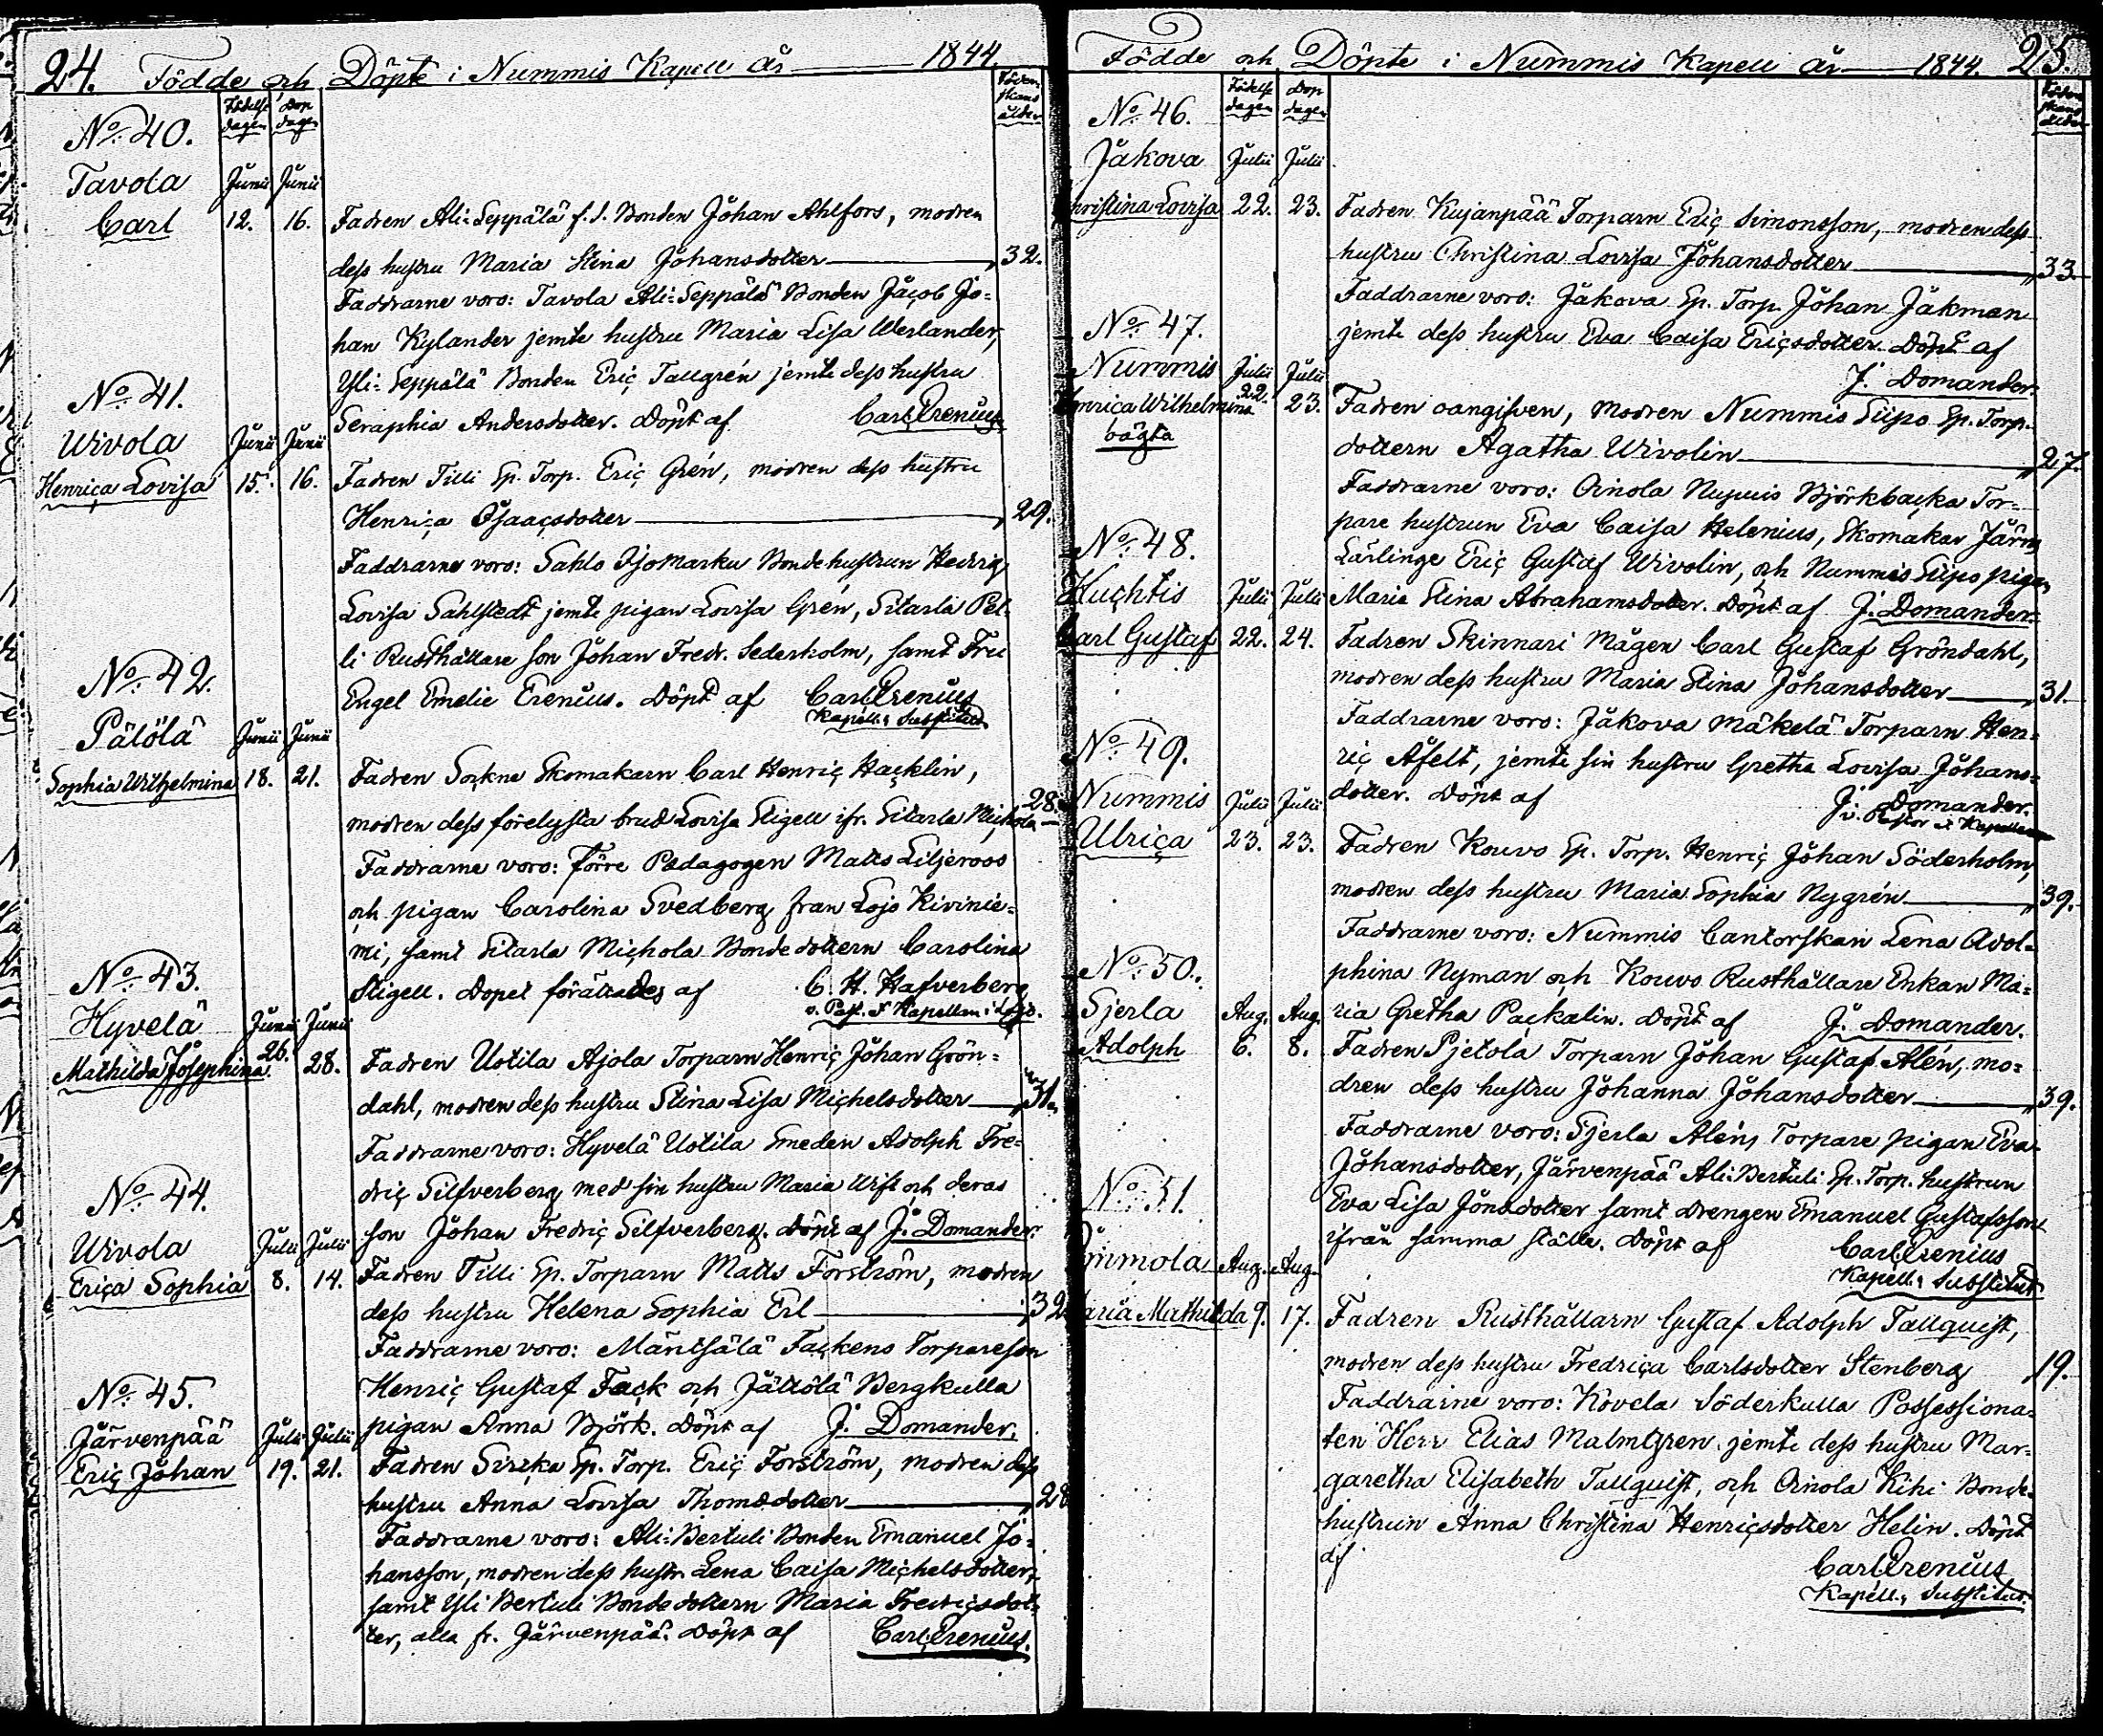 24. Födde och Döpte i Nummis Kapell År 1844.
Födelse dagen
Dop dagen
Föderskans ålder
No. 40.
Tavola Junii Junii
Carl 12. 16. Fadren Ali-Seppälä f.d. Bonden Johan Ahlfors, modren
dess hustru Maria Stina Johansdotter 32.
Faddrarne voro: Tavola Ali-Seppälä Bonden Jacob Jo-
han Kylander jemte hustru Maria Lisa Werlander,
Yli-Seppälä Bonden Eric Tallgrén jemte dess hustru
Seraphia Andersdotter. Döpt af Carl Crenius.
No. 41.
Wivola Junii Junii
Henrica Lovisa 15. 16. Fadren Tilli Sp. Torp. Eric Grén, modren dess hustru
Henrica Isaacsdotter 29.
Faddrarne voro: Sahlo Isomarku Bondehustrun Hedvig
Lovisa Sahlstedt jemte pigan Lovisa Grén, Sitarla Pel-
li Rusthållare son Johan Fredr. Sederholm, samt Fru
Engel Emelie Crenius. Döpt af Carl Crenius
Kapell: Substitut
No. 42.
Pälölä Junii Junii
Sophia Wilhelmina 18. 21. Fadren Sockne Skomakarn Carl Henric Hacklin,
modren dess förelysta brud Lovisa Stigell ifr. Sitarla Michola 28.
Faddrarne voro: Förre Pædagogen Matts Liljeroos
och pigan Carolina Svedberg från Lojo Kivinie-
mi, samt Sitarla Michola Bondedottern Carolina
Stigell. Dopet förättades af C. H. Hafverberg
v. Past. & Kapellan i Lojo.
No. 43.
Hyvelä Junii Junii
Mathilda Josephina 26. 28. Fadren Uotila Ajola Torparn Henric Johan Grön-
dahl, modren dess hustru Stina Lisa Michelsdotter 31.
Faddrarne voro: Hyvelä Uotila Smeden Adolph Fre-
dric Silfverberg med sin hustru Maria Wist och deras
son Johan Fredric Silfverberg. Döpt af J. Domander.
No. 44.
Wivola Julii Julii
Erica Sophia 8. 14. Fadren Tilli Sp. Torparn Matts Forström, modren
dess hustru Helena Sophia Erl 32
Faddrarne voro: Mäntsälä Fackens Torpareson
Henric Gustaf Fack och Jättölä Bergkulla
pigan Anna Björk. Döpt af J. Domander.
No. 45.
Järvenpää Julii Julii
Eric Johan 19. 21. Fadren Sp. Torp. Eric Forström, modren dess
hustru Anna Lovisa Thomædotter 28
Faddrarne voro: Ali-Bertuli Bonden Emanuel Jo-
hansson, modren dess hustr. Lena Caisa Michelsdotter,
samt Yli Bertuli Bondedottern Maria Fredricsdot-
ter, alla fr. Järvenpää. Döpt af Carl Crenius.
Födde och Döpte i Nummis Kapell År 1844. 25.
Födelse dagen
Dop dagen
Föderskans ålder
No. 46.
Jakova Julii Julii
Christina Lovisa 22. 23. Fadren Kujanpää Torparn Eric Simonsson, modren dess
hustru Christina Lovisa Johansdotter 33.
Faddrarne voro: Jakova Sp. Torp. Johan Jakman
jemte dess hustru Eva Caisa Ericsdotter. Döpt af
J. Domander.
No. 47.
Nummis Julii Julii
Henrica Wilhelmina 22. 23. Fadren oangifven, Modren Nummis Siipo Sp. Torp.
oägta
dottern Agatha Wivolin 27.
Faddrarne voro: Oinola Nupuis Björkbacka Tor-
pare hustrun Eva Caisa Helenius, Skomakar
Lärlinge Eric Gustaf Wivolin, och Nummis Siipo pigan
Maria Stina Abrahamsdotter. Döpt af J. Domander.
No. 48.
Huchtis Julii Julii
Carl Gustaf 22. 24. Fadren Skinnari Mågen Carl Gustaf Gröndahl,
modren dess hustru Maria Stina Johansdotter 31.
Faddrarne voro: Jakova Mäkelä Torparn Hen-
ric Åfelt, jemte sin hustru Gretha Lovisa Johans-
dotter. Döpt af J. Domander.
v. Pastor & Kapellan
No. 49.
Nummis Julii Julii
Ulrica 23. 23. Fadren Kouvo Sp. Torp. Henric Johan Söderholm,
modren dess hustru Maria Sophia Nygrén 39.
Faddrarne voro: Nummis Cantorskan Lena Adol-
phina Nyman och Kouvo Rusthållare Enkan Ma-
ria Gretha Packalin. Döpt af J. Domander.
No. 50.
Sjerla Aug. Aug.
Adolph 6. 8. Fadren Pjetola Torparn Johan Gustaf Alén, mo-
dren dess hustru Johanna Johansdotter 39.
Faddrarne voro: Sjerla Aléns Torpare pigan Eva
Johansdotter, Järvenpää Ali-Bertuli Sp. Torp. hustrun
Eva Lisa Jönsdotter samt drengen Emanuel Gustafsson
ifrån samma ställe. Döpt af Carl Crenius
Kapell: Substitut
No. 51.
Immola Aug. Aug.
Maria Mathilda 9. 17. Fadren Rusthållarn Gustaf Adolph Tallquist,
modren dess hustru Fredrica Carlsdotter Stenberg 19.
Faddrarne voro: Kovela Söderkulla Possessiona-
ten Herr Elias Malmgren jemte dess hustru Mar-
garetha Elisabeth Tallquist, och Oinola Kihi Bonde-
hustrun Anna Christina Henricsdotter Helin. Döpt
af Carl Crenius
Kapell: Substitut.